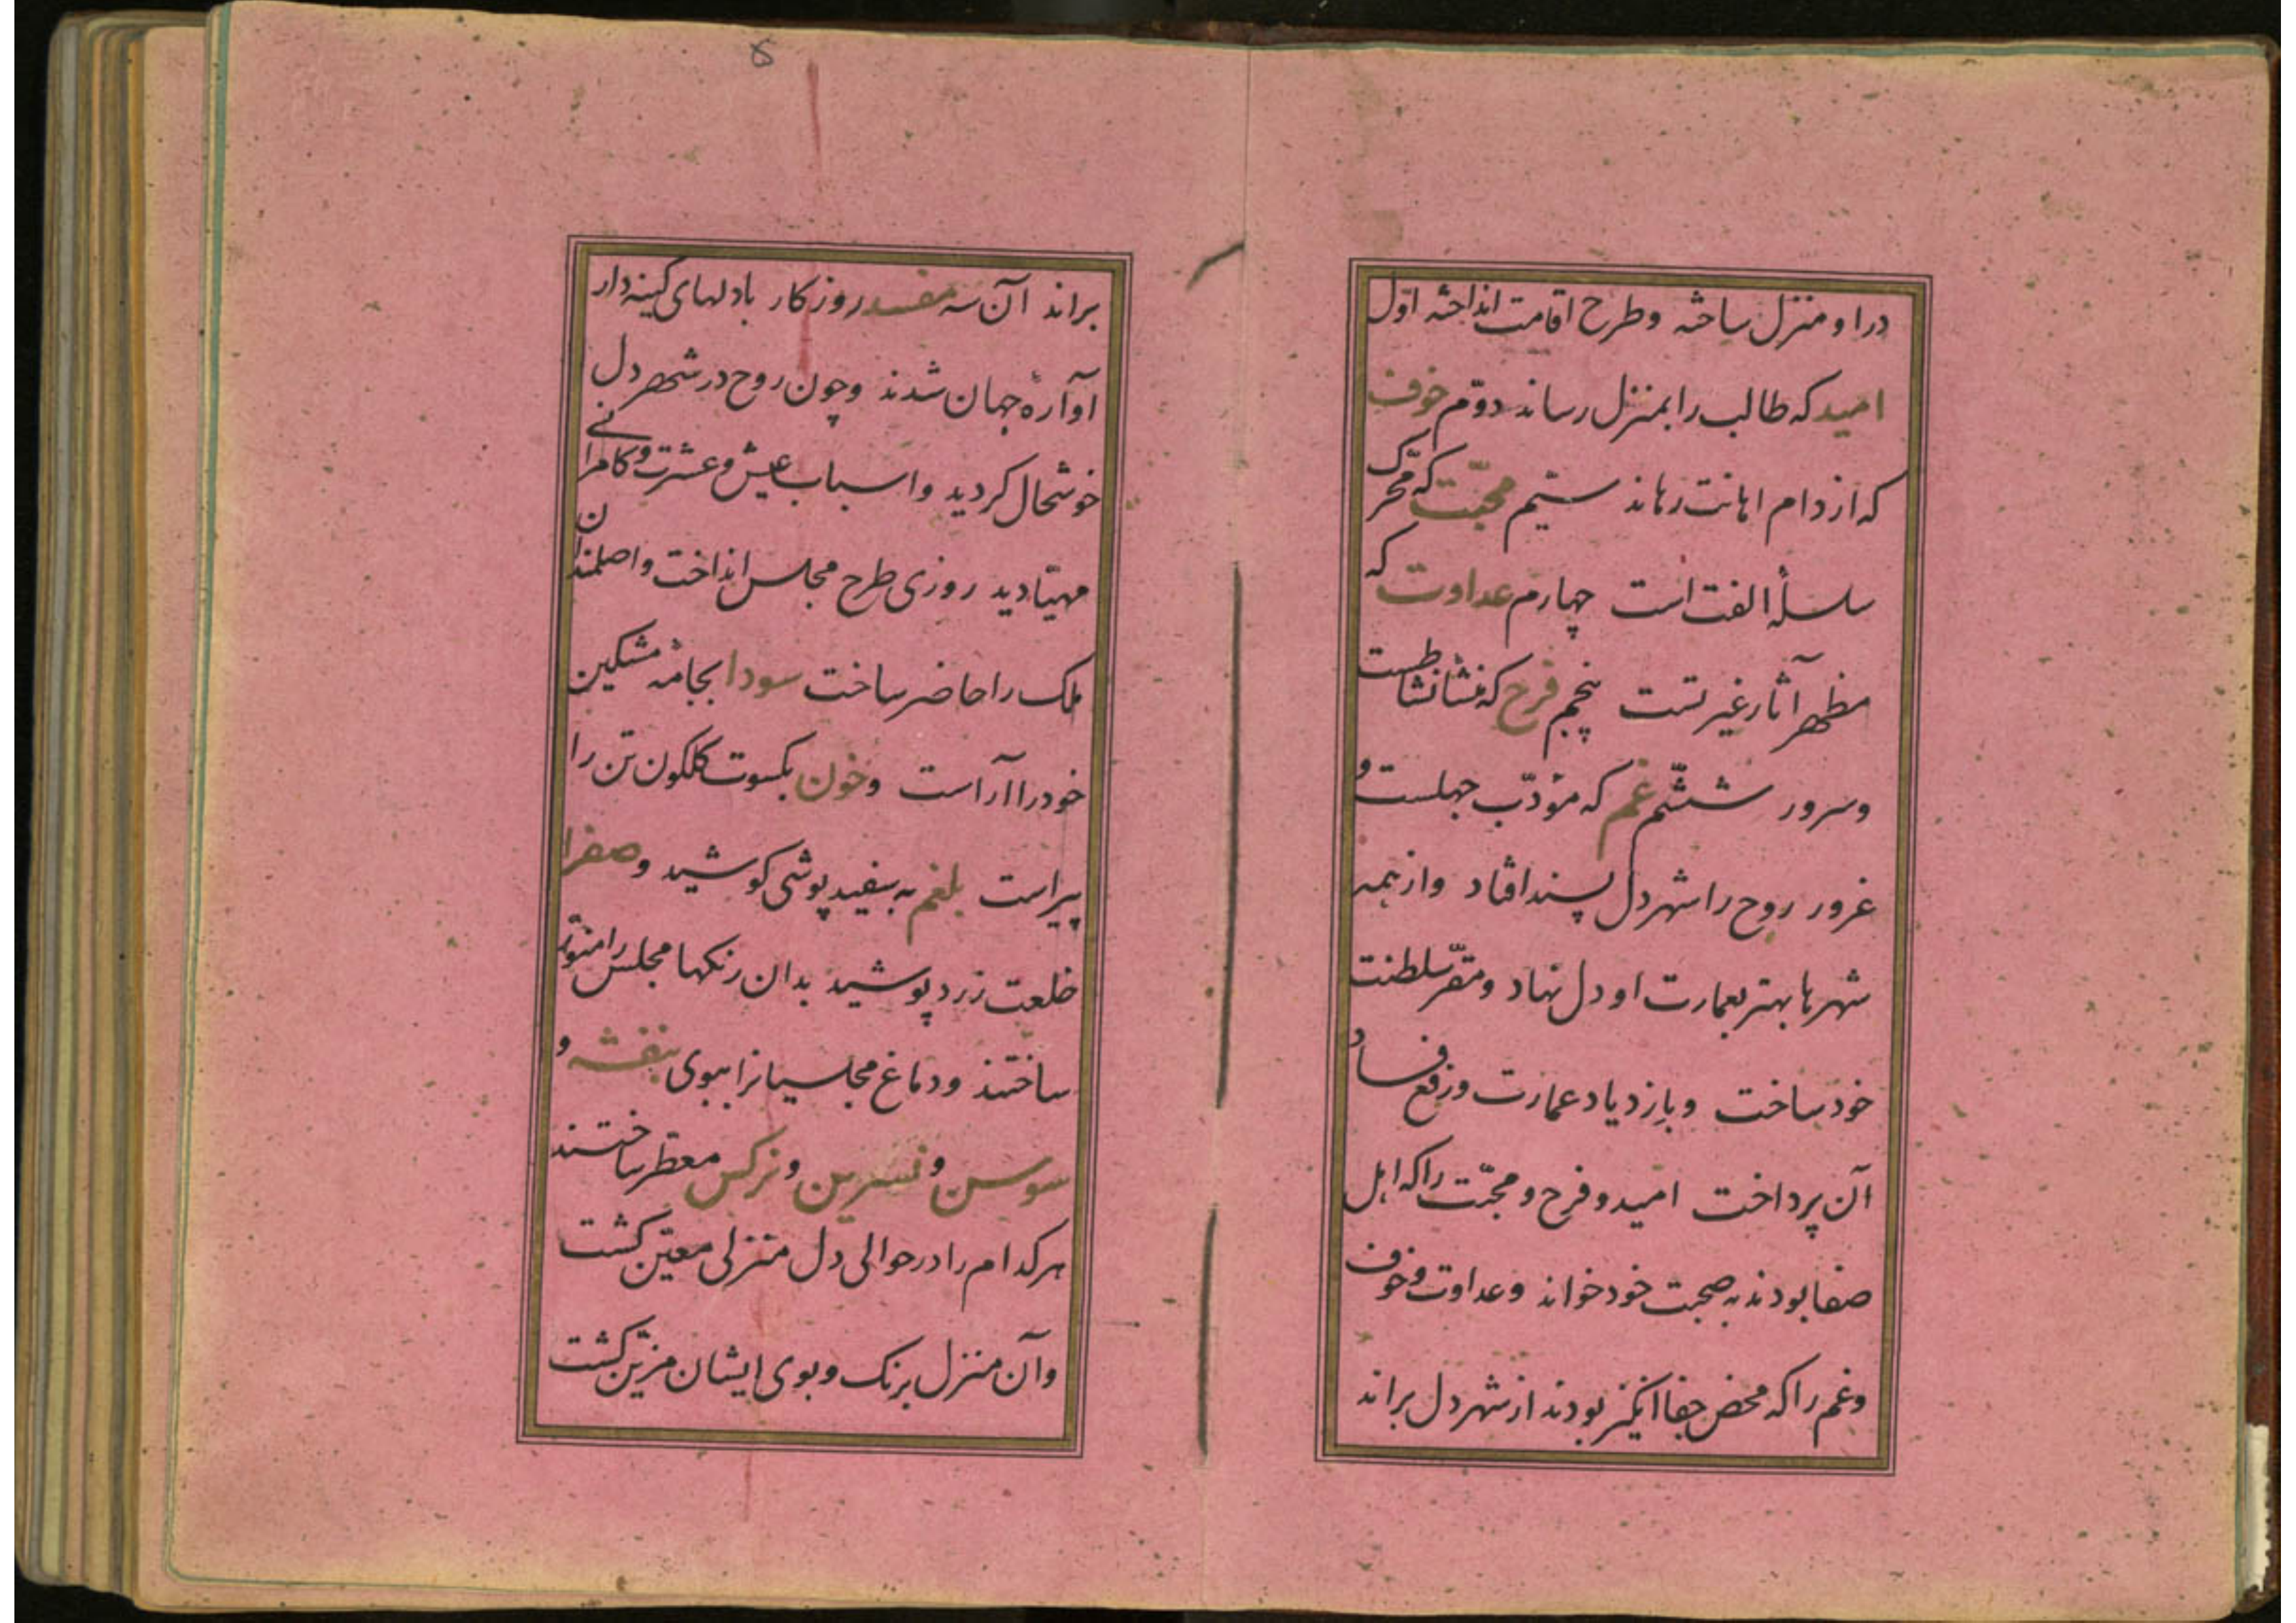 در او منزل ساخته و طرح اقامت انداخته اوّل
امید که طالب را بمنزل رساند دوّم خوف
که از دام اهانت رهاند سیّم محبّت که محّرک
سلسلهٔ الفت است چهارم عداوت که
مظهر آثار غیرتست پنجم فرح که منشأ نشاطست
و سرور ششّم غم که مؤدّب جهلست و
غرور روح را شهر دل پسند افتاد و از همه
شهرها بهتر بعمارت او دل نهاد و مقرّ سلطنت
خود ساخت و بازدیاد عمارت و رفع فساد
آن پرداخت امید و فرح و محبّت را که اهل
صفا بودند به صحبت خود خواند و عداوت و خوف
و غم را که محض جفا انکیز بودند از شهر دل براند
۵
براند آن سه مفسد روزکار با دلهای کینه دار
آوارهٔ جهان شدند و چون روح در شهر دل
خوشحال کردید و اسباب عیش و عشرت و کامرانی
مهیّا دید روزی طرح مجلس انداخت و اصلمندان
ملک را حاضر ساخت سودا بجامهٔ مشکین
خود را آراست و خون بکسوت کلکون تن را
پیراست بلغم به سفید پوشی کوشید و صفرا
خلعت زرد پوشید بدان رنکها مجلس را منوّر
ساختند و دماغ مجلسیانرا ببوی بنفشه و
سوسن و نسرین و نرکس معطّر ساختند
هر کدام را در حوالی دل منزلی معیّن کشت
و آن منزل برنک و بوی ایشان مزیّن کشت